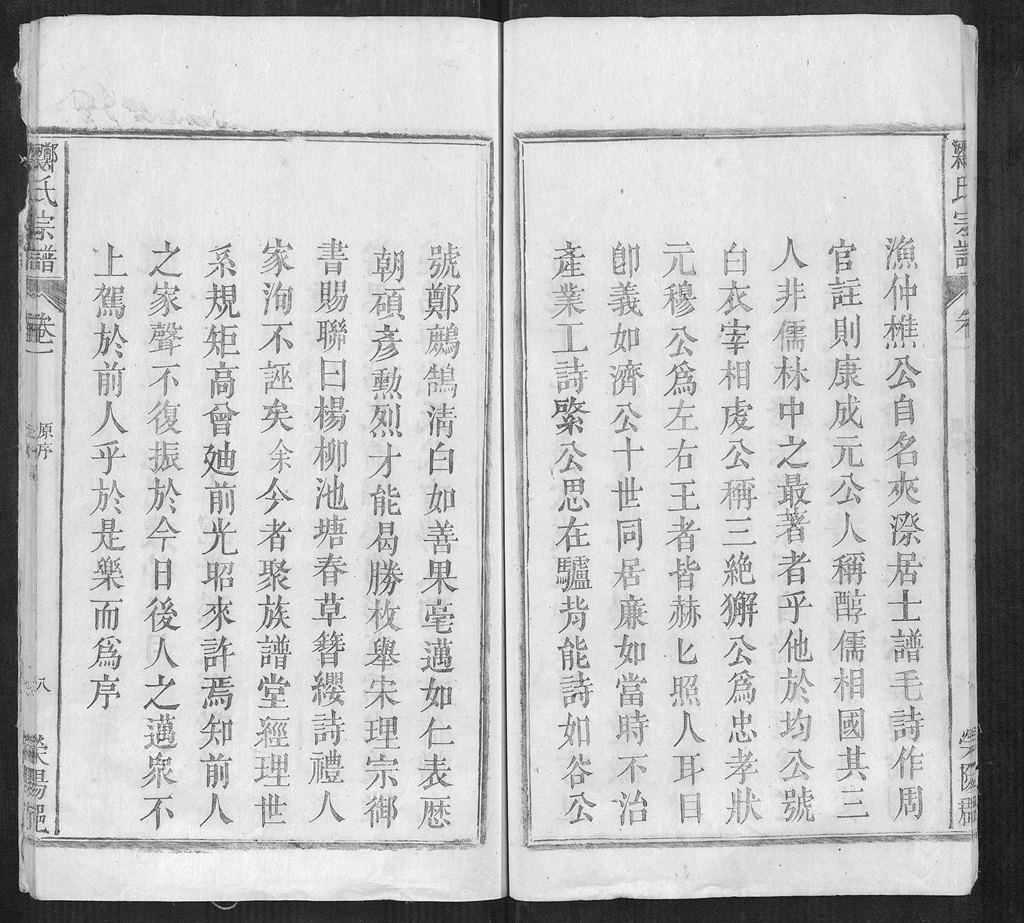 鄭氏宗譜
漁仲樵公自名夾漈居士譜毛詩作周
官註則康成元公人稱醇儒相國其三
人非儒林中之最著者乎他於均公號
白衣宰相虔公稱三絶獬公爲忠孝狀
元穆公爲左右王者皆赫匕照人耳目
卽義如濟公十世同居廉如當時不治
產業工詩棨公思在驢背能詩如谷公
滎陽郡
號鄭鷓鴣淸白如善果亳邁如仁表歷
朝碩彥勳烈才能曷勝枚舉宋理宗御
書賜聯曰楊柳池塘春草簪纓詩禮人
家洵不誣矣余今者聚族譜堂經理世
系規矩高曾廸前光昭來許焉知前人
之家聲不復振於今日後人之邁衆不
上駕於前人乎於是樂而爲序
鄭氏宗譜
卷一
原序
八
滎陽郡